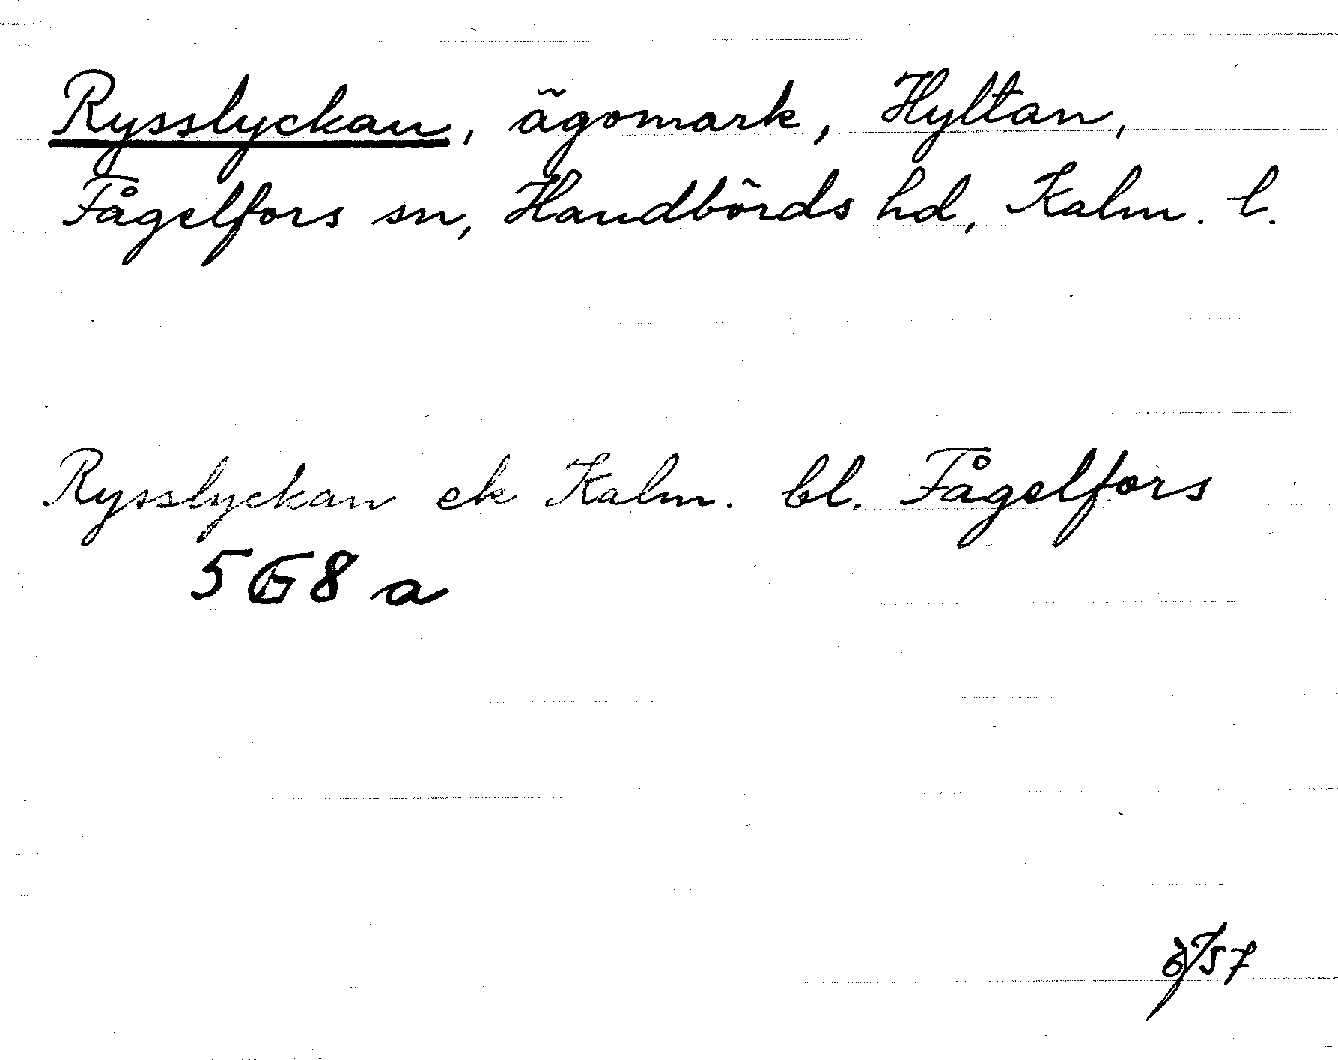 Rysslyckan, ägomark, Hyltan,
Fågelfors sn, Handbörds hd, Kalm. l.
Rysslyckan ek Kalm. bl. Fågelfors
5G8 a